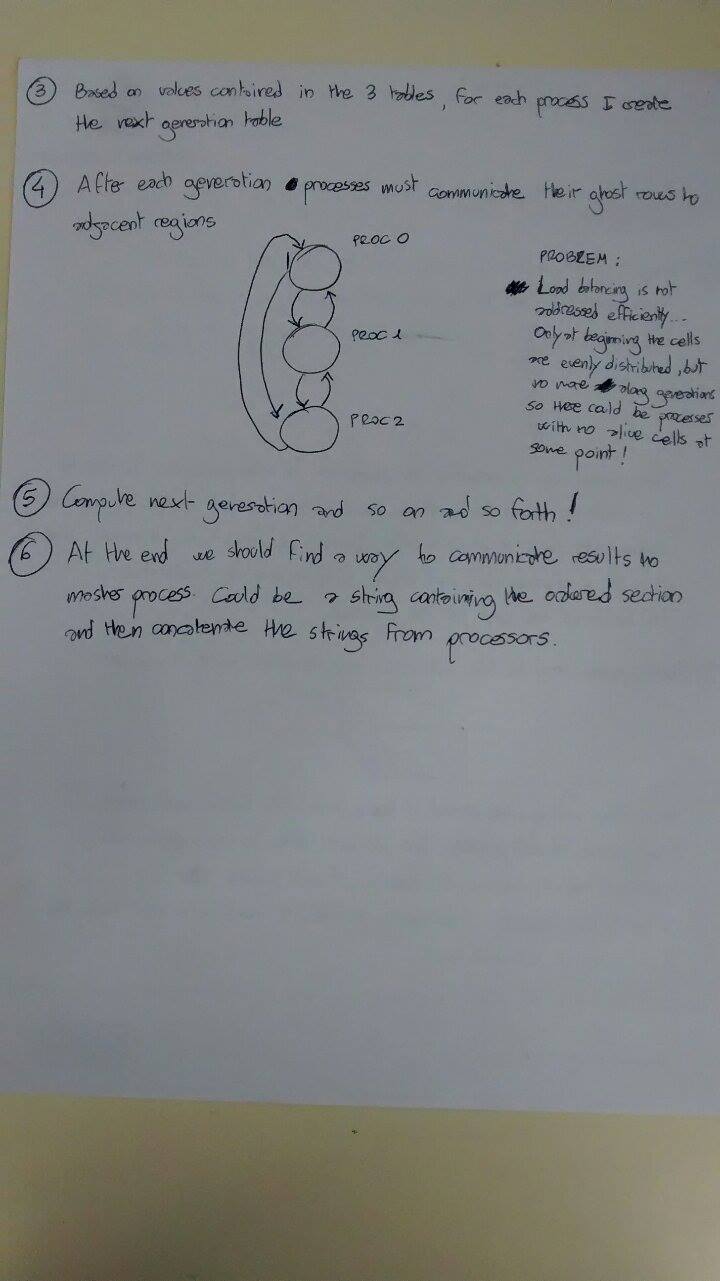 ③ Based on values contained in the 3 tables, for each process I create
the next generation table
④ After each generation processes must communicate their ghost rows to
adjacent regions
PROC 0
PROC 1
PROC 2
PROBLEM:
Load balancing is not
addressed efficiently...
Only at beginning the cells
are evenly distributed, but
no more along generations
so there could be processes
with no alive cells at
some point!
⑤ Compute next generation and so on and so forth!
⑥ At the end we should find a way to communicate results to
master process. Could be a string containing the ordered section
and then concatenate the strings from processors.